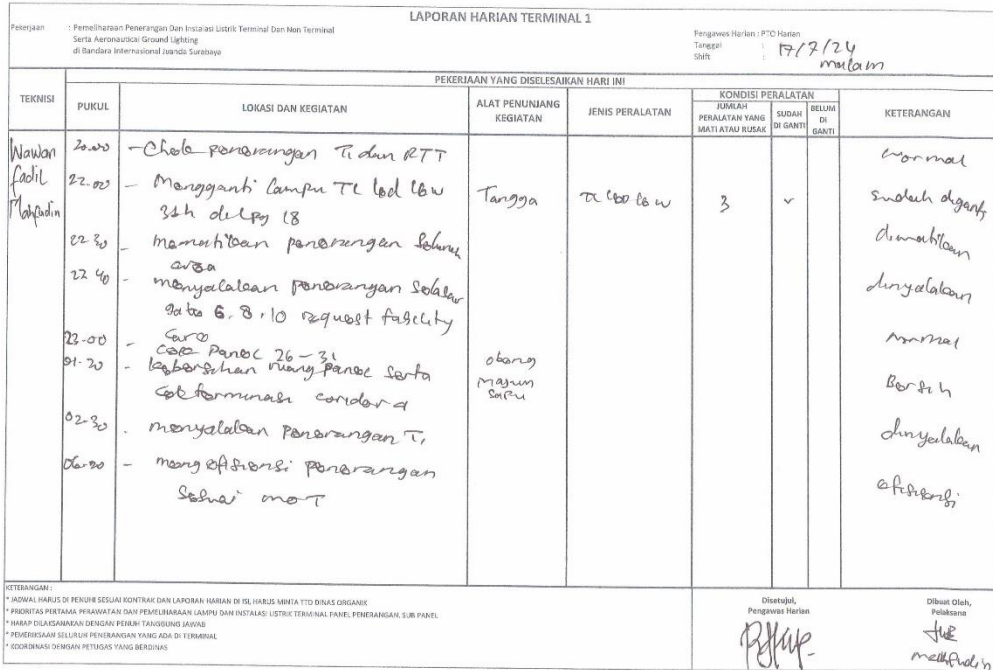 LAPORAN HARIAN TERMINAL 1
Pekerjaan : Pemeliharaan Penerangan Dan Instalasi Listrik Terminal Dan Non Terminal
Serta Aeronautical Ground Lighting
di Bandara Internasional Juanda Surabaya
Pengawas Harian : PTO Harian
Tanggal : 17/7/24
Shift : malam
PEKERJAAN YANG DISELESAIKAN HARI INI
TEKNISI PUKUL LOKASI DAN KEGIATAN ALAT PENUNJANG KEGIATAN JENIS PERALATAN KONDISI PERALATAN KETERANGAN
JUMLAH PERALATAN YANG MATI ATAU RUSAK SUDAH DI GANTI BELUM DI GANTI
Wawan 20.00 - Chek penerangan T1 dan RTT normal
fadil 22.00 - Mengganti lampu TL led 16w Tangga TL led 16w 3 ✓ sudah diganti
Mahfudin 3bh 18
22 30 - mematikan penerangan seluruh dimatikan
area
22 40 - menyalakan penerangan selasar dinyalakan
gate 6, 8, 10 request facility
care
23.00 - cek panel 26-31 normal
01-20 - kebersihan ruang panel serta obeng Bersih
cek terminasi coridor 4 sapu
02-30 - menyalakan penerangan T1 dinyalakan
06.00 - mengefisiensi penerangan efisiensi
sesuai
KETERANGAN :
* JADWAL HARUS DI PENUHI SESUAI KONTRAK DAN LAPORAN HARIAN DI ISI, HARUS MINTA TTD DINAS ORGANIK
* PRIORITAS PERTAMA PERAWATAN DAN PEMELIHARAAN LAMPU DAN INSTALASI LISTRIK TERMINAL PANEL PENERANGAN, SUB PANEL
* HARAP DILAKSANAKAN DENGAN PENUH TANGGUNG JAWAB
* PEMERIKSAAN SELURUH PENERANGAN YANG ADA DI TERMINAL
* KOORDINASI DENGAN PETUGAS YANG BERDINAS
Disetujui,
Pengawas Harian
Dibuat Oleh,
Pelaksana
mahfudin